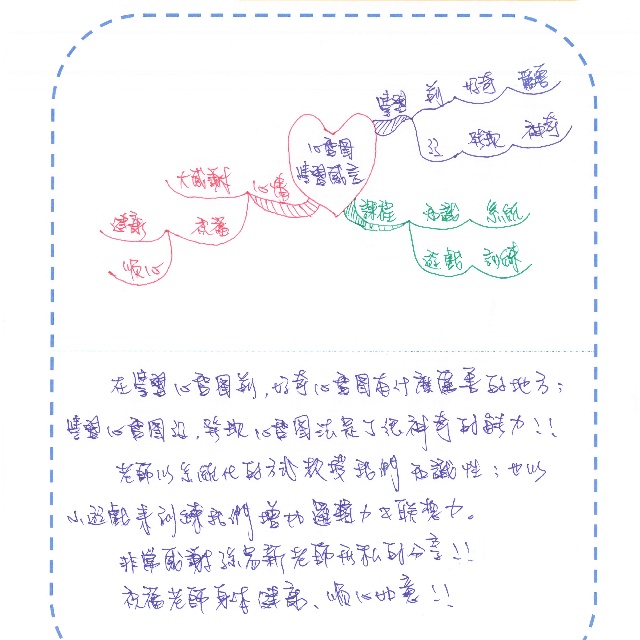 學習 前 好奇 厲害
後 發現 神奇
心智圖
學習感言
大感謝 心情
健康 祝福
順心
課程 知識 系統
遊戲 訓練
在學習心智圖前,好奇心智圖有什麼厲害的地方;
學習心智圖後,發現心智圖法是个很神奇的能力!!
老師以系統化的方式我們知識性;也以
小遊戲來訓練我們增加邏輯力及聯想力。
非常感謝孫易新老師無私的分享!!
祝福老師身体健康、順心如意!!